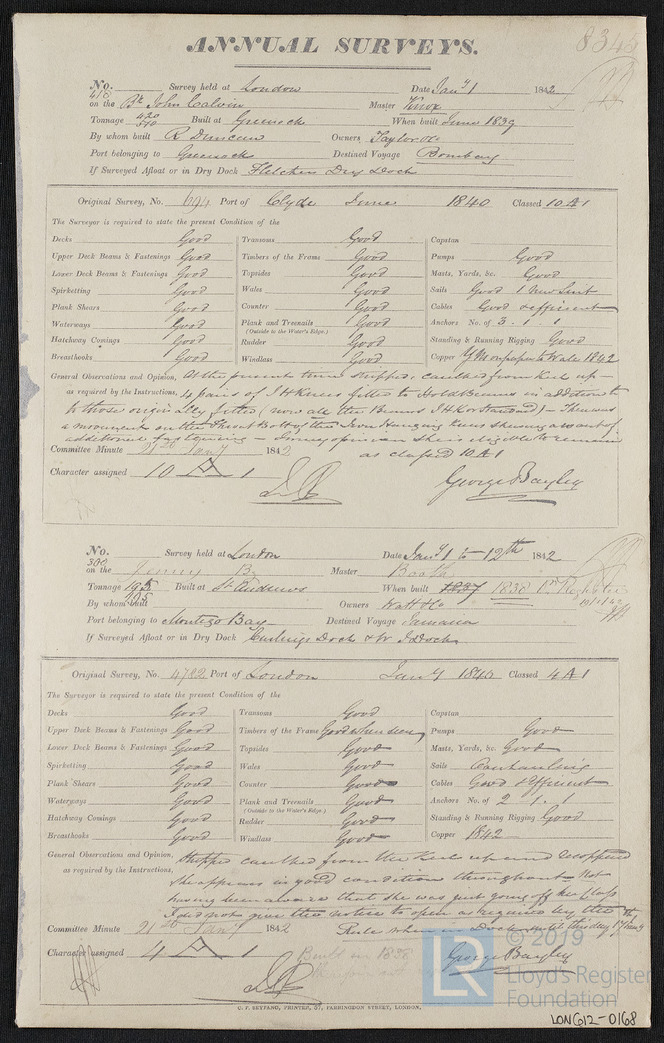 8345
ANNUAL SURVEYS.
No. 418 Survey held at London Date Jany 1 1842
on the Bk John Calvin Master Knox
Tonnage 420 510 Built at Greenock When built June 1839
By whom built R Duncan Owners Taylor &c
Port belonging to Greenock Destined Voyage Bombay
If Surveyed Afloat or in Dry Dock Fletchers Dry Dock
Original Survey, No. 694 Port of Clyde June 1840 Classed 10 A 1
The Surveyor is required to state the present Condition of the
Decks Good Transoms Good Capstan
Upper Deck Beams & Fastenings Good Timbers of the Frame Good Pumps Good
Lower Deck Beams & Fastenings Good Topsides Good Masts, Yards, &c. Good
Spirketting Good Wales Good Sails Good 1 New Suit
Plank Shears Good Counter Good Cables Good & efficient
Waterways Good Plank and Treenails Good Anchors No. of 3 . 1 . 1
(Outside to the Water's Edge.)
Hatchway Comings Good Rudder Good Standing & Running Rigging Good
Breasthooks Good Windlass Good Copper Y M on paper to Wales 1842
General Observations and Opinion, At the present time stripped, caulked from Keel up —
as required by the Instructions, 4 pairs of I H Knees fitted to Hold Beams in addition to
to those originally fitted (now all the Beams I H K or Standard) — There was
a movement on the Throat Bolts of the Iron Hanging Knees shewing a want of
additional fastening — In my opinion She is eligible to remain
Committee Minute 21st Jany 1842 as classed 10 A 1
Character assigned 10 A 1 George Bayley
No. 300 Survey held at London Date Jany 1 to 12th 1842
on the Jenny Bg Master Booth
Tonnage 195 195 Built at St Andrews When built 1837 1838 Pr Register
By whom built Owners Watt & Co 19/1/42
Port belonging to Montego Bay Destined Voyage Jamaica
If Surveyed Afloat or in Dry Dock Curlings Dock & W I Docks
Original Survey, No. 4782 Port of London Jany 1840 Classed 4 A 1
The Surveyor is required to state the present Condition of the
Decks Good Transoms Good Capstan
Upper Deck Beams & Fastenings Good Timbers of the Frame Good Pumps Good
Lower Deck Beams & Fastenings Good Topsides Good Masts, Yards, &c. Good
Spirketting Good Wales Good Sails
Plank Shears Good Counter Good Cables Good & Efficient
Waterways Good Plank and Treenails Good Anchors No. of 2 . 1 . 1
(Outside to the Water's Edge.)
Hatchway Comings Good Rudder Good Standing & Running Rigging Good
Breasthooks Good Windlass Good Copper 1842
General Observations and Opinion, Stripped caulked from the Keel up and Recoppered
as required by the Instructions, She appears in good condition throughout — Not
having been aware that she was just going off her Class
I did not give the notice to open as required by the
Rule when in Dock until this day 17 Jany
Committee Minute 21st Jany 1842
Character assigned 4 A 1 Built in 1838 George Bayley
C. F. SEYFANG, PRINTER, 57, FARRINGDON STREET, LONDON.
LR
© 2019
Lloyd's Register
Foundation
LON612-0168